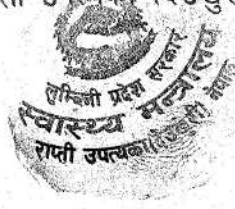 लुम्बिनी प्रदेश सरकार
स्वास्थ्य मन्त्रालय
राप्ती उपत्यका (देउखुरी) नेपाल